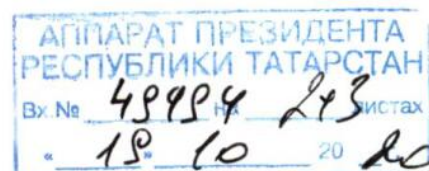 АППАРАТ ПРЕЗИДЕНТА
РЕСПУБЛИКИ ТАТАРСТАН
Вх.№ 49494 на 2+3 листах
« 19 » 10 20 20